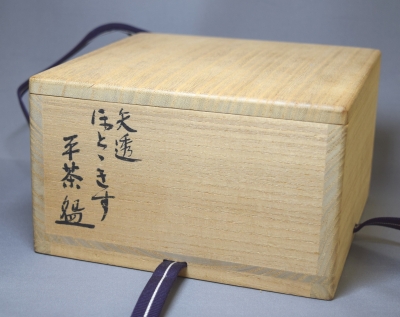 矢透
ほとゝきす
平茶盌